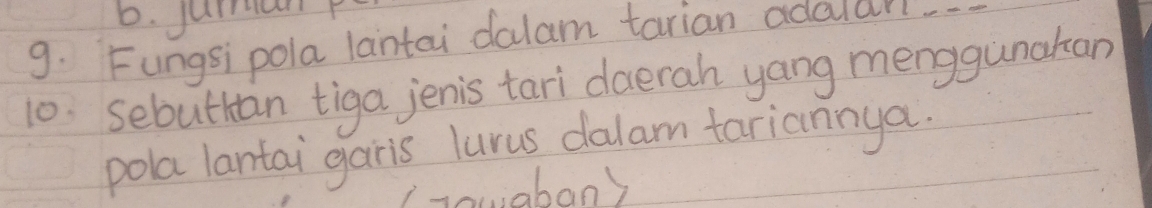 b. jumlah
9. Fungsi pola lantai dalam tarian adalah ---
10. Sebutkan tiga jenis tari daerah yang menggunakan
pola lantai garis lurus dalam tariannya.
(Jawaban)